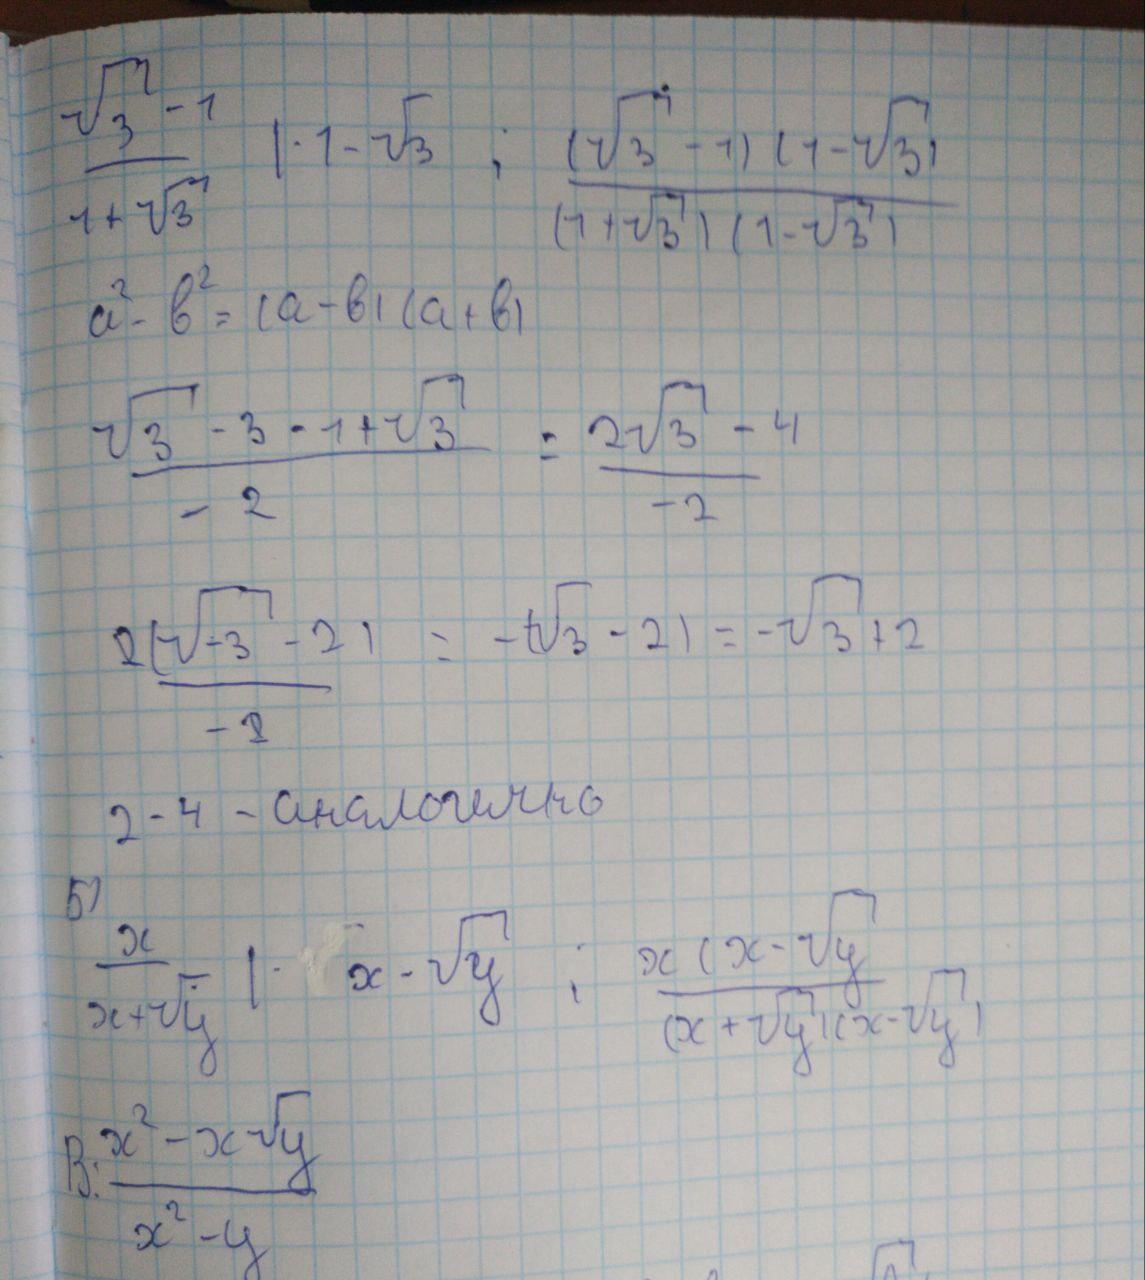 (√3 - 1)/(1 + √3) | · 1 - √3 ; ((√3 - 1)(1 - √3))/((1 + √3)(1 - √3))
a² - b² = (a - b)(a + b)
(√3 - 3 - 1 + √3)/(-2) = (2√3 - 4)/(-2)
2(√3 - 2)/(-2) = -(√3 - 2) = -√3 + 2
2-4 - аналогично
5)
x/(x + √y) | · x - √y ; x(x - √y/((x + √y)(x - √y)
В: (x² - x√y)/(x² - y)